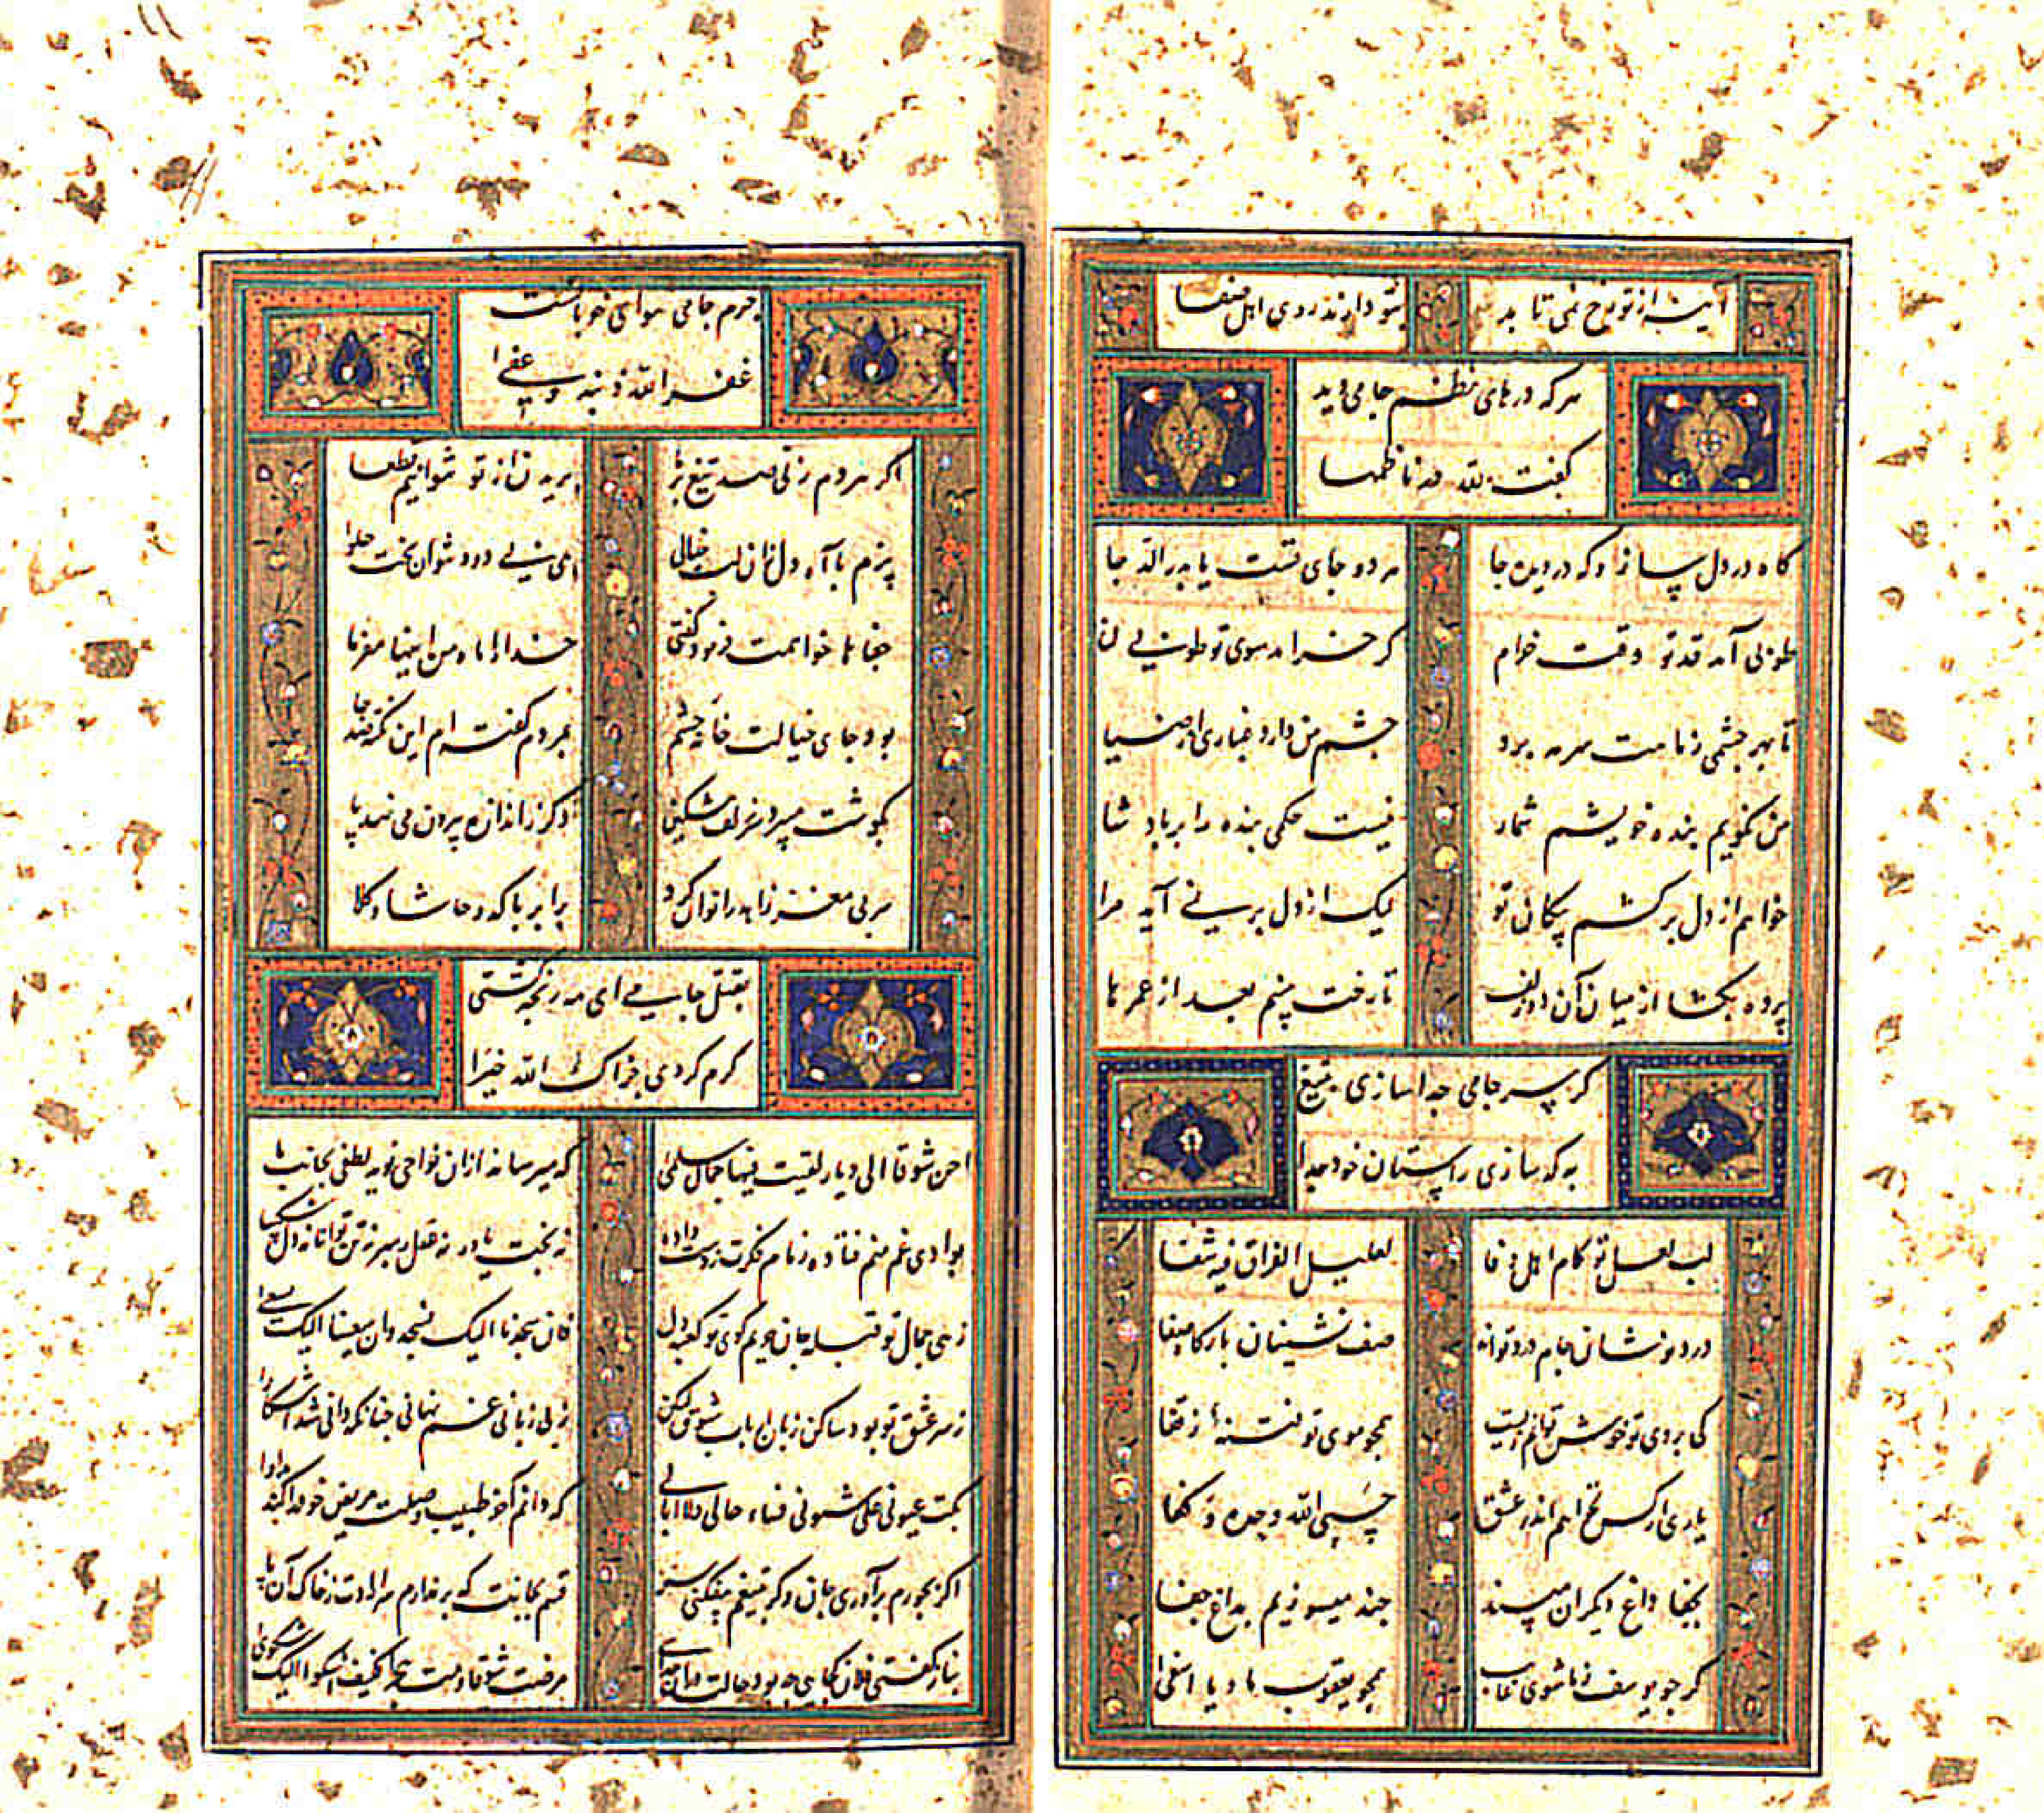 آینه از تو رخ نمی تابد
بتو دارند روی اهل صفا
هر که درهای نظم جامی دید
گفت لله در ناظمها
گاه در دل ساز جا و که در دیده جا
هر دو جای تست یا بدر الدجا
طوبی آمد قد تو وقت خرام
گر خرامد سوی تو طوبی لنا
تا بهر چشمی زمامت سرمه برد
چشم من دارد غباری از صبا
من نگویم بنده خویشم شمار
نیست حکمی بنده را بر پادشا
خواهم از دل برکشم پیکان تو
لیک از دل بر نمی آید مرا
پرده بگشا از میان آن دو زلف
تا رخت بینم بعد از عمرها
گر سر جامی جدا سازی بتیغ
به که سازی ز آستان خود جدا
لب لعل تو کام اهل وفا
لعلیل الفراق فیه شفا
درد نوشان جام درد تواند
صف نشینان بارگاه صفا
کی بروی تو خوش توانم زیست
همچو موی تو فتنه ز قفا
یاری از کس نخواهم اندر عشق
حسبی الله وحده و کفا
بجفا داغ دیگران مپسند
چند میسوزیم بداغ جفا
گر چو یوسف ز ما شوی غایب
همچو یعقوب ما و یا اسفا
جرم جامی هوای خوبانست
غفر الله ذنبه و عفا
اگر هر دم زنی صد تیغ بر ما
بریدن از تو نتوانیم قطعا
پزم با آه دل زان لب خیالی
بی دود نتوان پخت حلوا
جفاها خواهمت فرمود گفتی
خدا را ماه من اینها مفرما
بود جای خیالت خانه چشم
بمردم گفته ام این نکته صد جا
بگوشت میبرد سر زلف مشکین
دگر ز اندازه بیرون می نهد پا
سر بی مغز زاهد را توان کرد
برابر با کدو حاشا و کلا
بقتل جامی ای مه رنجه گشتی
کرم کردی جزاک الله خیرا
احن شوقا الی دیار لقیت فیها جمال سلمی
که میرساند ازان نواحی نوید لطفی بجانب ما
بوادی غم منم فتاده زمام فکرت ز دست داده
نه بخت یاور نه عقل رهبر نه تن توانا نه دل شکیبا
زهی جمال تو قبله جان حریم کوی تو کعبه دل
فان سجدنا الیک نسجد وان سعینا الیک نسعی
ز سر عشق تو بود ساکن زبان ارباب شوق لیکن
ز بی زبانی غم نهانی چنانکه دانی شد آشکارا
بکت عیونی علی شئونی فساء حالی ولا ابالی
که دانم آخر طبیب وصلت مریض خود را کند مداوا
اگر بجورم برآوری جان وگر بتیغم بیفکنی سر
قسم بجانت که بر ندارم سر ارادت ز خاک آن پا
بناز گفتی فلان کجایی چه بود حالت درین جدایی
مرضت شوقا و مت هجرا فکیف اشکو الیک شکوی